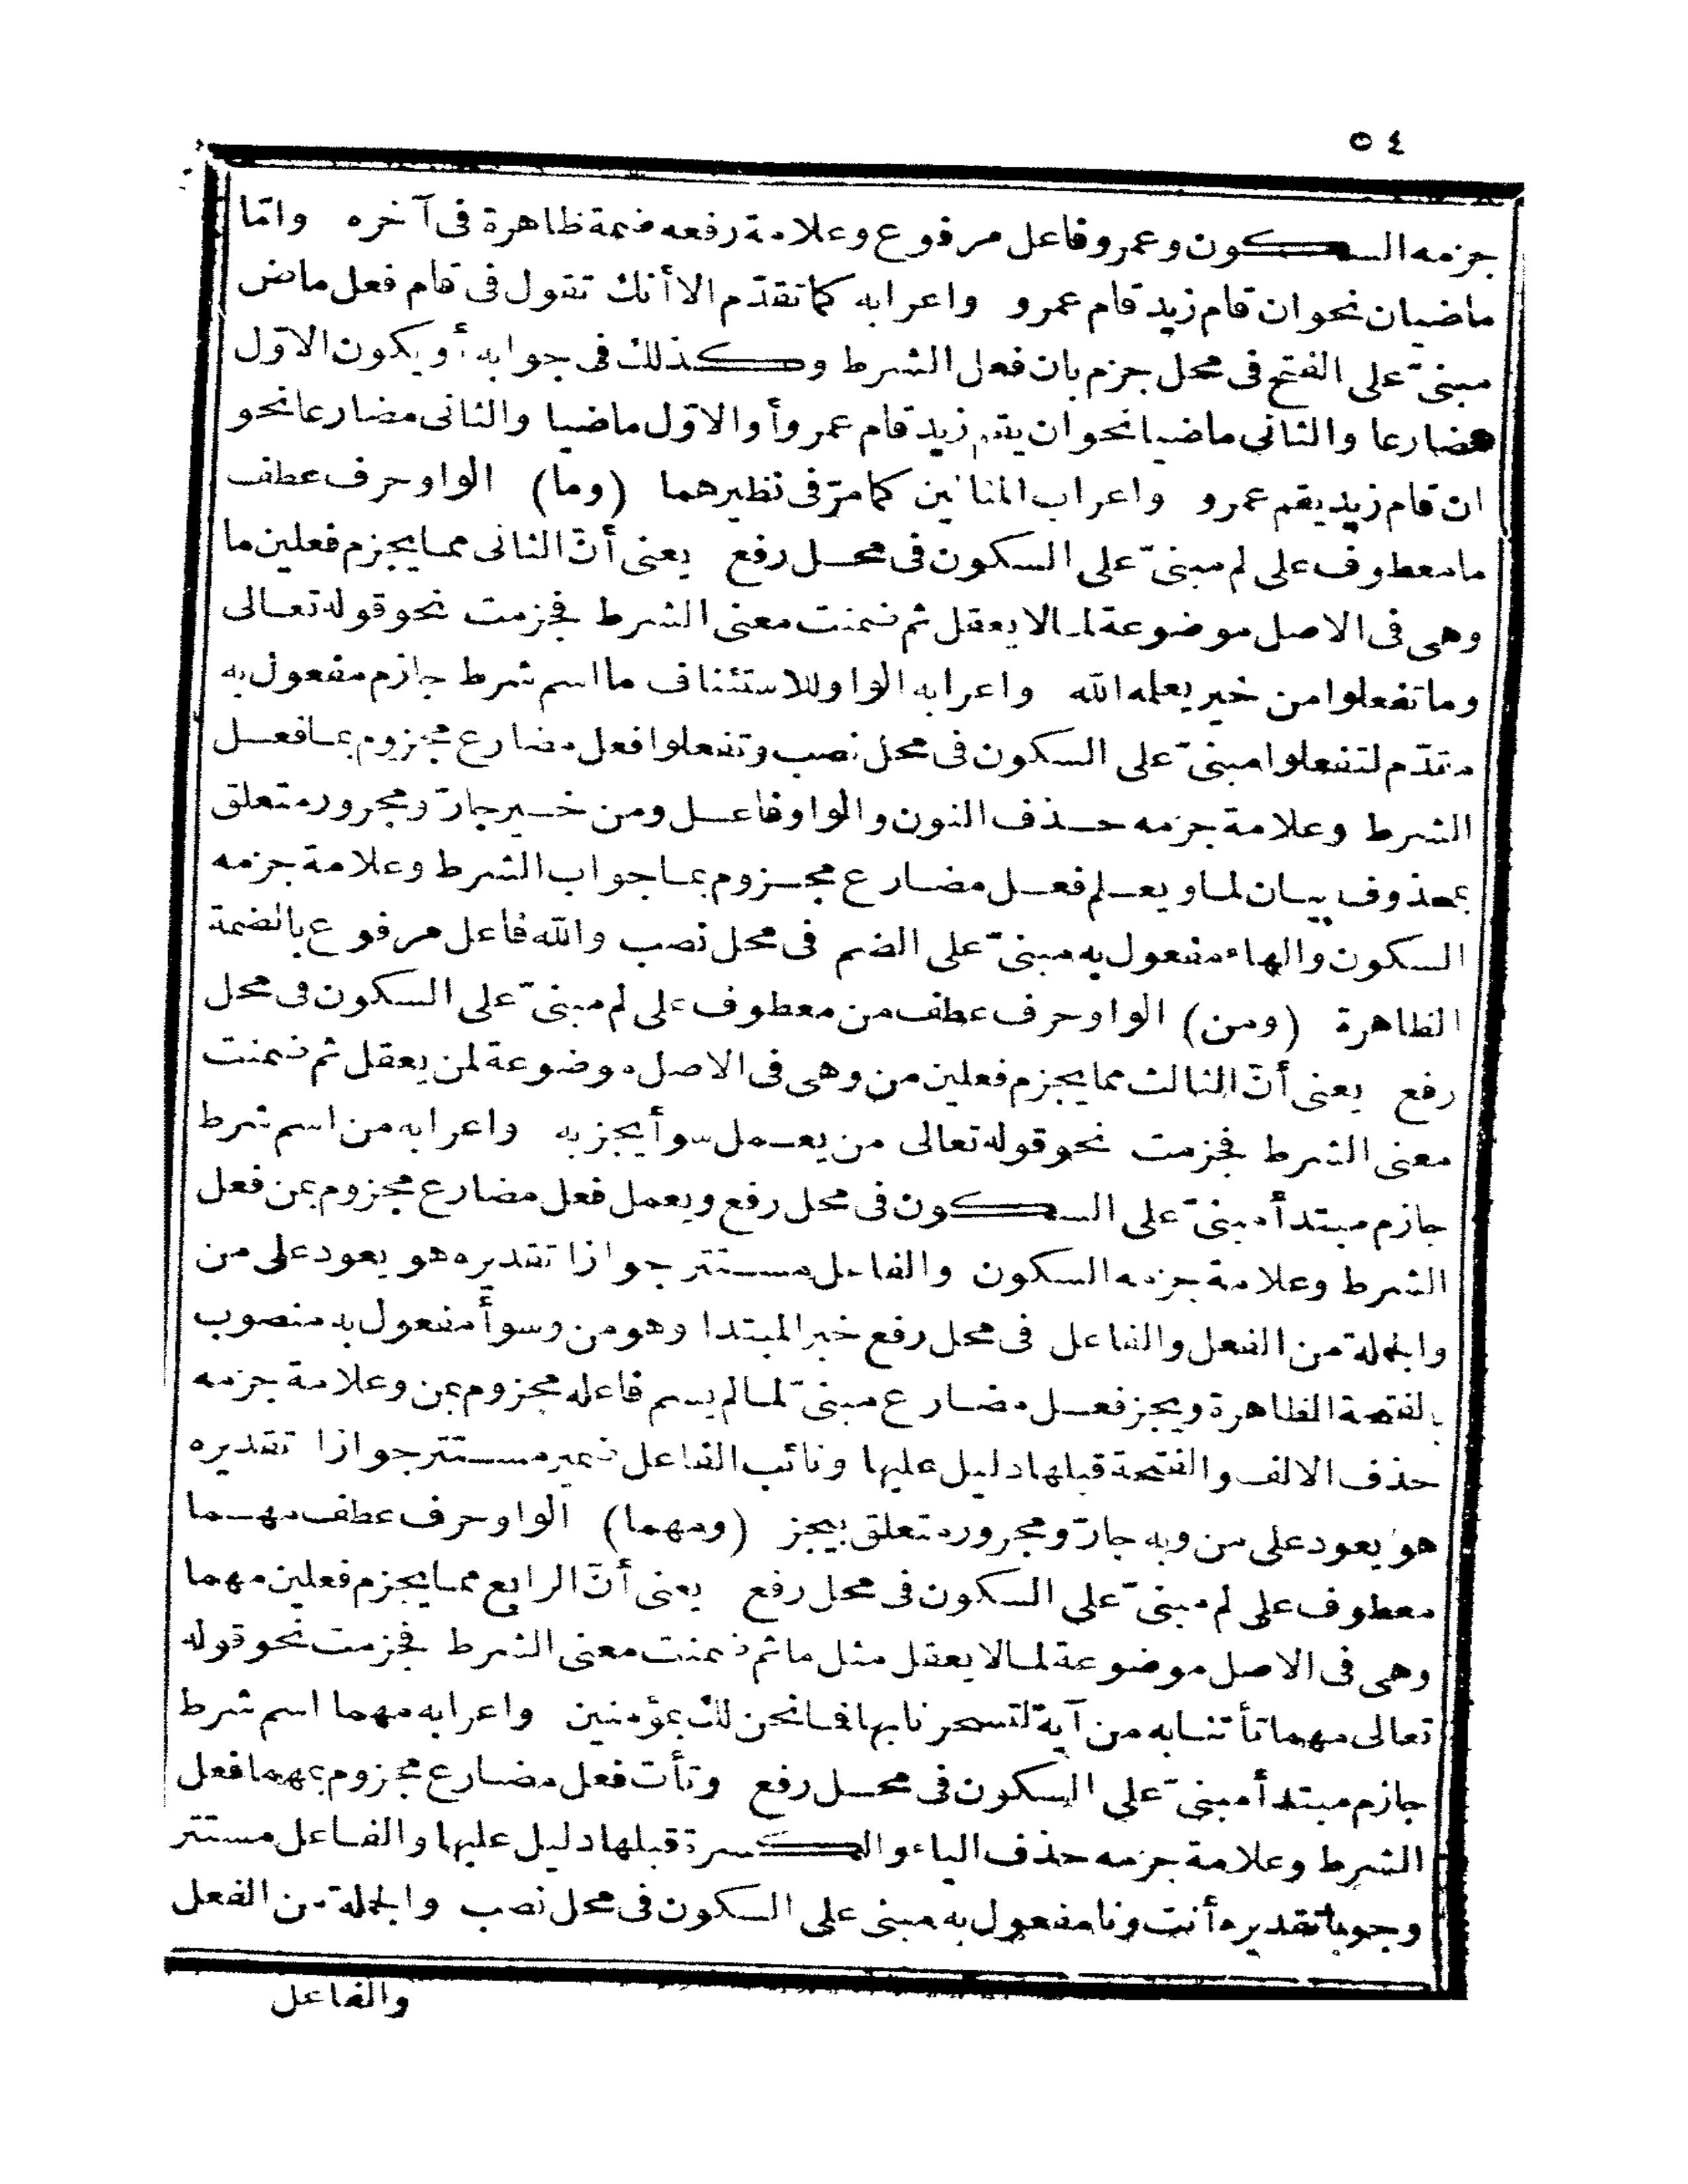 ٥٤
جزمه السكون وعمرو فاعل مرفوع وعلامة رفعه ضمة ظاهرة فى آخره وامّا
ماضيان نحو ان قام زيد قام عمرو واعرابه كما تقدّم الا أنك تقول فى قام فعل ماض
مبنىّ على الفتح فى محل جزم بان فعل الشرط وكذلك فى جوابه أو يكون الاوّل
مضارعا والثانى ماضيا نحو ان يقم زيد قام عمرو أو الاوّل ماضيا والثانى مضارعا نحو
ان قام زيد يقم عمرو واعراب المثالين كما مرّ فى نظيرهما (وما) الواو حرف عطف
ما معطوف على لم مبنىّ على السكون فى محل رفع يعنى أنّ الثانى مما يجزم فعلين ما
وهى فى الاصل موضوعة لما لا يعقل ثم ضمنت معنى الشرط فجزمت نحو قوله تعالى
وما تفعلوا من خير يعلمه الله واعرابه الواو للاستئناف ما اسم شرط جازم مفعول به
مقدّم لتفعلوا مبنىّ على السكون فى محل نصب وتفعلوا فعل مضارع مجزوم بما فعل
الشرط وعلامة جزمه حذف النون والواو فاعل ومن خير جارّ ومجرور متعلق
بمحذوف بيان لما ويعلم فعل مضارع مجزوم بما جواب الشرط وعلامة جزمه
السكون والهاء مفعول به مبنىّ على الضم فى محل نصب والله فاعل مرفوع بالضمة
الظاهرة (ومن) الواو حرف عطف من معطوف على لم مبنىّ على السكون فى محل
رفع يعنى أنّ الثالث مما يجزم فعلين من وهى فى الاصل موضوعة لمن يعقل ثم ضمنت
معنى الشرط فجزمت نحو قوله تعالى من يعمل سوأ يجز به واعرابه من اسم شرط
جازم مبتدأ مبنىّ على السكون فى محل رفع ويعمل فعل مضارع مجزوم بمن فعل
الشرط وعلامة جزمه السكون والفاعل مستتر جوازا تقديره هو يعود على من
والجملة من الفعل والفاعل فى محل رفع خبر المبتدا وهو من وسوأ مفعول به منصوب
بالفتحة الظاهرة ويجز فعل مضارع مبنىّ لما لم يسم فاعله مجزوم بمن وعلامة جزمه
حذف الالف والفتحة قبلها دليل عليها ونائب الفاعل ضمير مستتر جوازا تقديره
هو يعود على من وبه جارّ ومجرور متعلق بيجز (ومهما) الواو حرف عطف مهما
معطوف على لم مبنىّ على السكون فى محل رفع يعنى أنّ الرابع مما يجزم فعلين مهما
وهى فى الاصل موضوعة لما لا يعقل مثل ما ثم ضمنت معنى الشرط فجزمت نحو قوله
تعالى مهما تأتنا به من آية لتسحرنا بها فما نحن لك بمؤمنين واعرابه مهما اسم شرط
جازم مبتدأ مبنىّ على السكون فى محل رفع وتأت فعل مضارع مجزوم بمهما فعل
الشرط وعلامة جزمه حذف الياء والكسرة قبلها دليل عليها والفاعل مستتر
وجوبا تقديره أنت ونا مفعول به مبنى على السكون فى محل نصب والجملة من الفعل
والفاعل